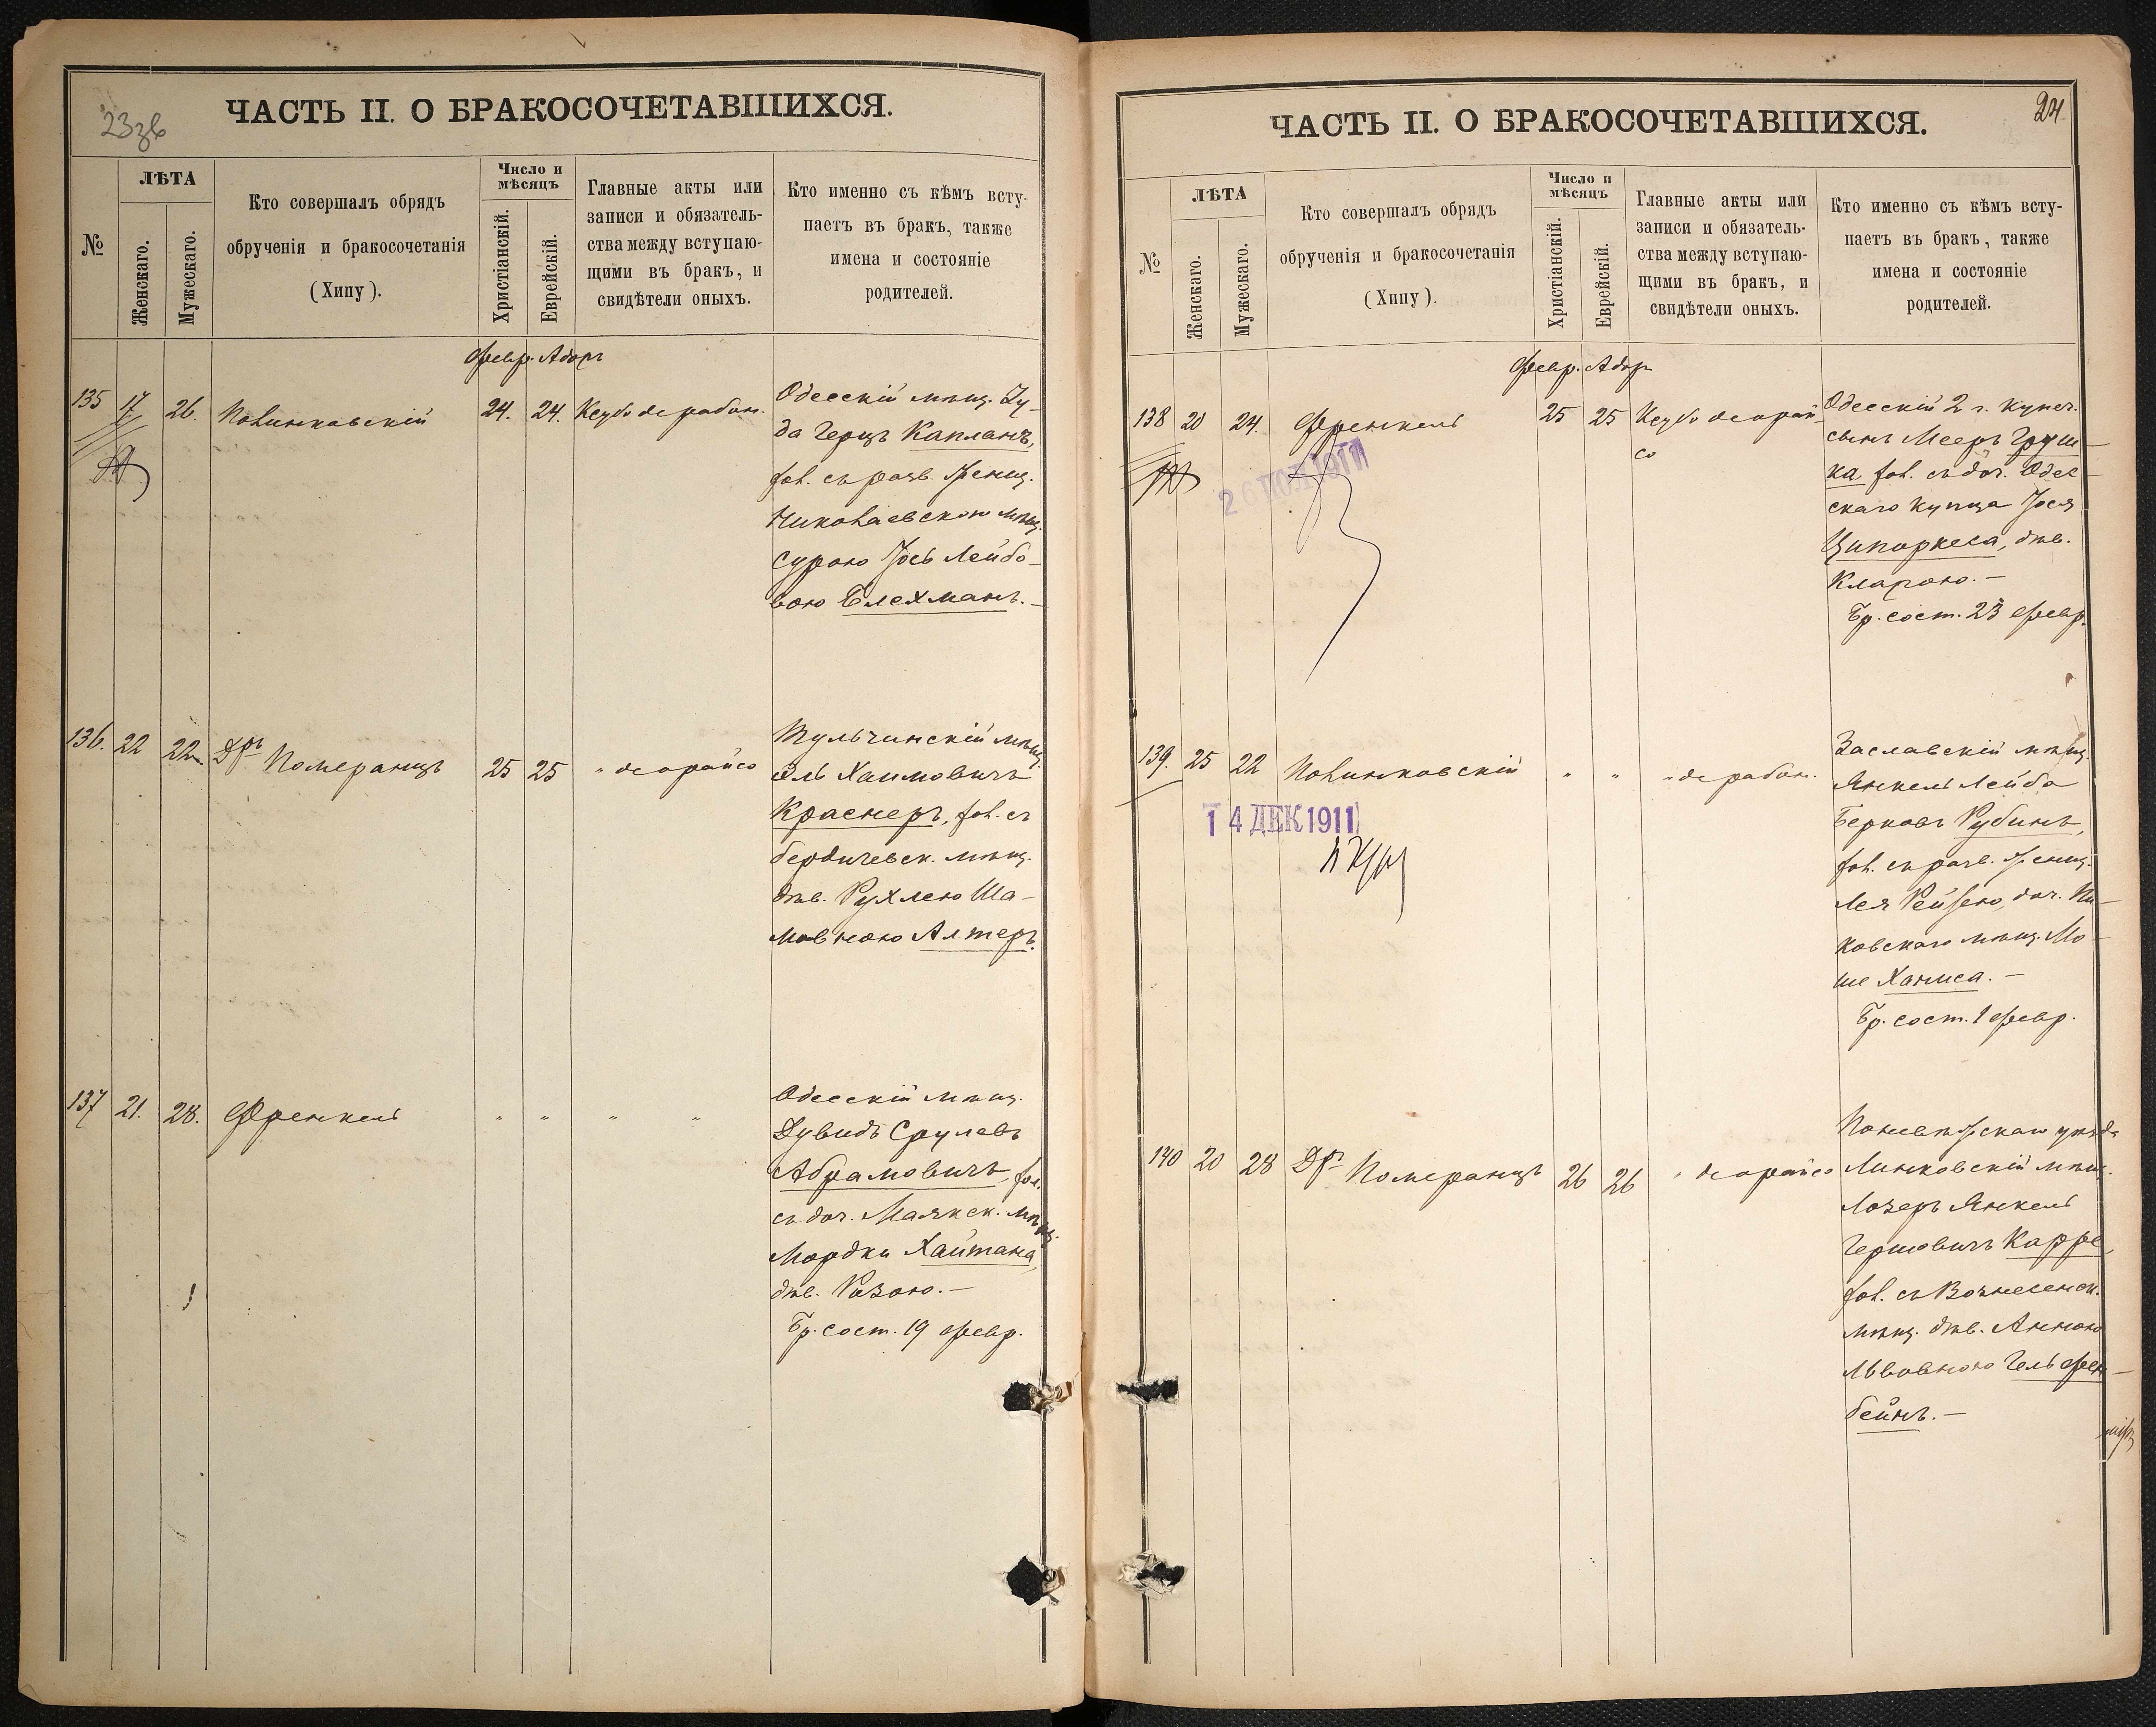 23зв
ЧАСТЬ II. О БРАКОСОЧЕТАВШИХСЯ.
№
ЛѢТА
Женскаго.
Мужескаго.
Кто совершалъ обрядъ
обрученія и бракосочетанія
(Хипу).
Число и
мѣсяцъ
Христіанскій.
Еврейскій.
Главные акты или
записи и обязатель-
ства между вступаю-
щими въ бракъ, и
свидѣтели оныхъ.
Кто именно съ кѣмъ всту-
паетъ въ бракъ, также
имена и состояніе
родителей.
Февр. Адаръ
135 17 26. Полинковскій 24. 24. Ксубоderабон.
Одесскій мѣщ. Іу-
да Герцъ Капланъ,
хол. съ разв. женщ.
Николаевскою мѣщ.
Сурою Іось Лейбо-
вою Блехманъ.
136. 22 22 Дръ Померанцъ 25 25 " деорайсо
Тульчинскій мѣщ.
Эль Хаимовичъ
Краснеръ, хол. съ
бердичевск. мѣщ.
дѣв. Рухлею Ша-
мовною Алтеръ.
137 21. 28. Френкель " " " "
Одесскій мѣщ.
Дувидъ Срулевъ
Абрамовичъ, хол.
съ доч. Маякск. мѣщ.
Мордки Хайтана,
дѣв. Розою. —
Бр. сост. 19 февр.
24
ЧАСТЬ II. О БРАКОСОЧЕТАВШИХСЯ.
№
ЛѢТА
Женскаго.
Мужескаго.
Кто совершалъ обрядъ
обрученія и бракосочетанія
(Хипу).
Число и
мѣсяцъ
Христіанскій.
Еврейскій.
Главные акты или
записи и обязатель-
ства между вступаю-
щими въ бракъ, и
свидѣтели оныхъ.
Кто именно съ кѣмъ всту-
паетъ въ бракъ, также
имена и состояніе
родителей.
Февр. Адаръ
138 20 24. Френкель 25 25 Ксубо деорай-
со
Одесскій 2 г. купеч.
сынъ Мееръ Груш-
ка, хол. съ доч. Одес-
скаго купца Іося
Ципоркеса, дѣв.
Кларою. —
Бр. сост. 23 февр.
139. 25 22 Полинковскій " " " деrабон.
14 ДЕК 1911
Заславскій мѣщ.
Янкель Лейба
Берковъ Рубинъ,
хол. съ разв. женщ.
Лея Рейзею, доч. Пи-
ковскаго мѣщ. Мо-
ше Хаимса. —
Бр. сост. 1 февр.
140 20 28 Дръ Померанцъ 26 26 " деорайсо
Поневѣжскаго уѣзда
Линковскій мѣщ.
Лозеръ Янкель
Гершовичъ Карре,
хол. съ Вознесенск.
мѣщ. дѣв. Анною
Львовною Гельфен-
бейнъ. —